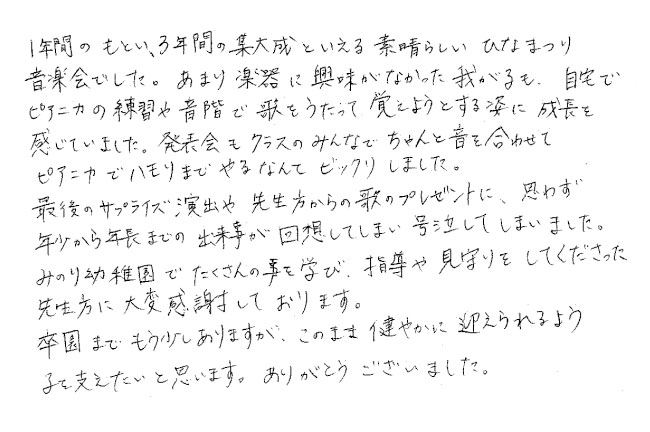 1年間の もとい、3年間の集大成といえる 素晴らしい ひなまつり
音楽会でした。 あまり 楽器に 興味がなかった 我が子も、 自宅で
ピアニカの 練習や 音階で 歌をうたって 覚えようとする姿に 成長を
感じていました。発表会も クラスの みんなで ちゃんと音を合わせて
ピアニカで ハモりまで やるなんて ビックリ しました。
最後のサプライズ演出や 先生方からの歌のプレゼントに、 思わず
年少から年長までの 出来事が 回想してしまい 号泣してしまいました。
みのり幼稚園で たくさんの事を学び、 指導や 見守りを してくださった
先生方に 大変感謝しております。
卒園まで もう少しありますが、 このまま 健やかに 迎えられるよう
子を支えたいと思います。 ありがとう ございました。